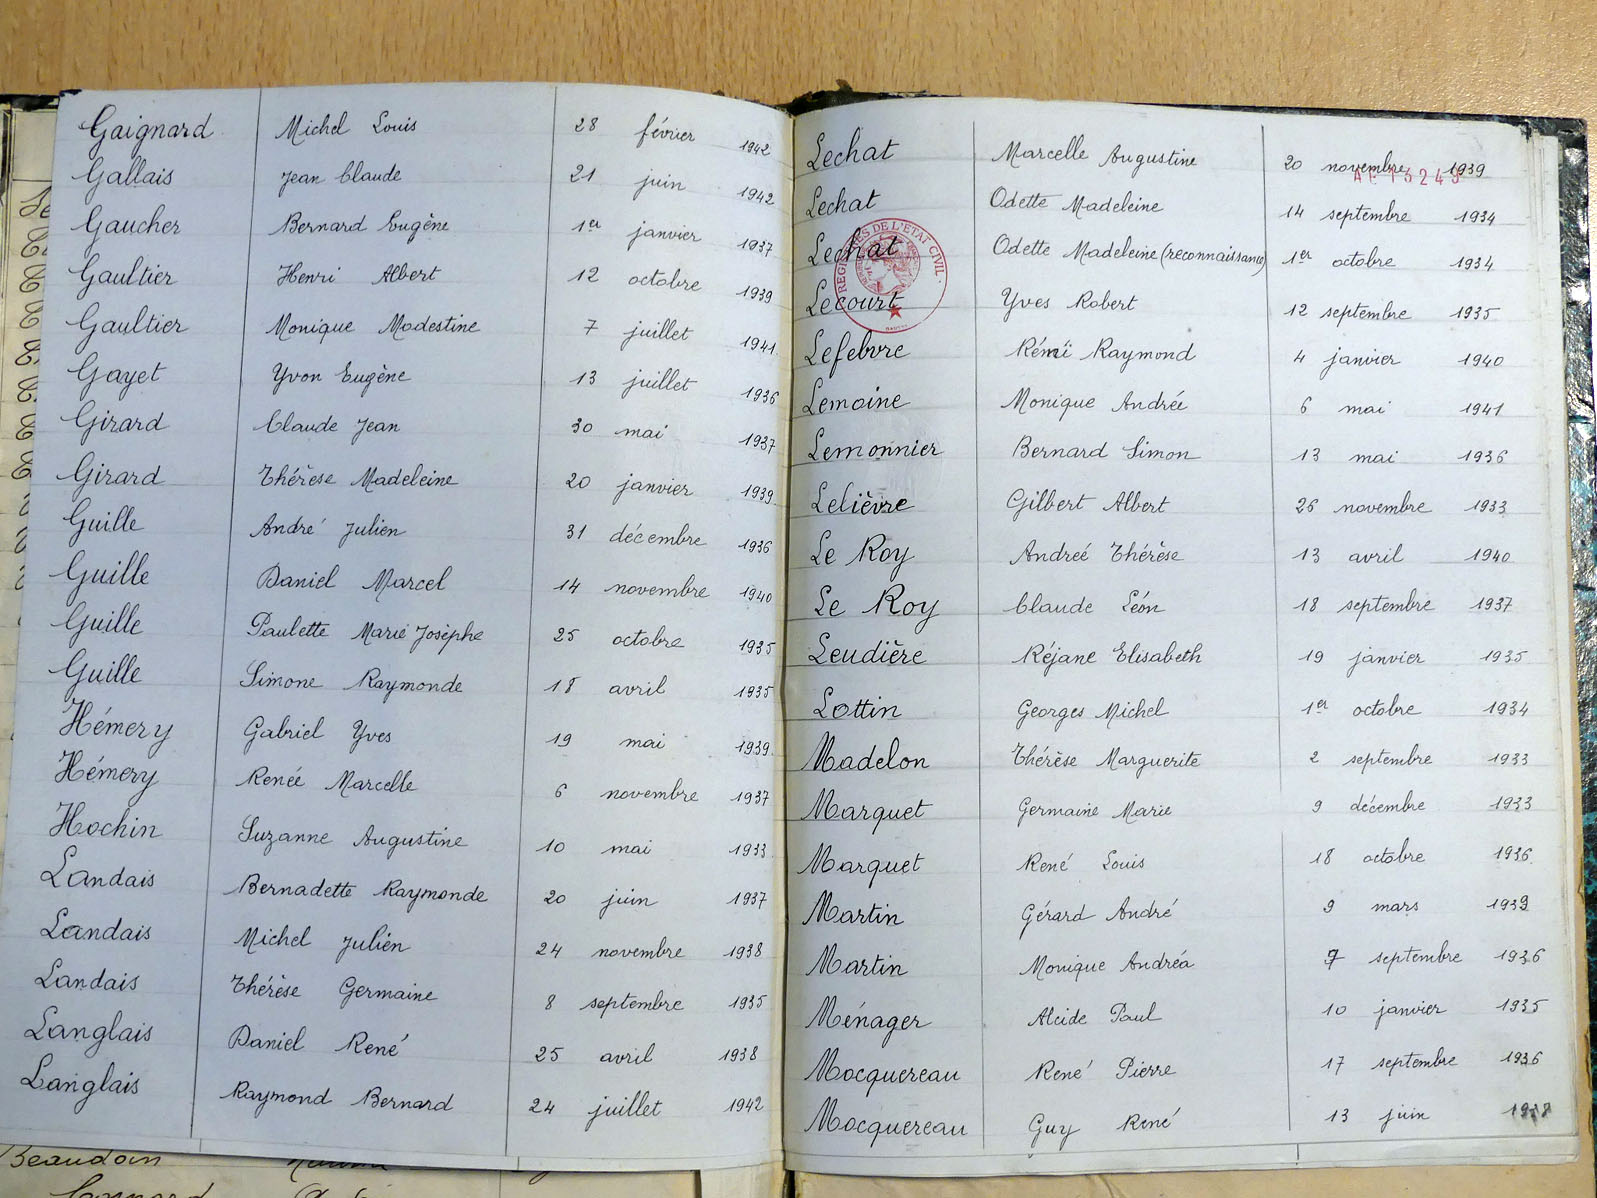 Gaignard Michel Louis 28 février 1942
Gallais Jean Claude 21 juin 1942
Gaucher Bernard Eugène 1er janvier 1937
Gaultier Henri Albert 12 octobre 1939
Gaultier Monique Modestine 7 juillet 1941
Gayet Yvon Eugène 13 juillet 1936
Girard Claude Jean 30 mai 1937
Girard Thérèse Madeleine 20 janvier 1939
Guille André Julien 31 décembre 1936
Guille Daniel Marcel 14 novembre 1940
Guille Paulette Marie Josèphe 25 octobre 1935
Guille Simone Raymonde 18 avril 1935
Hémery Gabriel Yves 19 mai 1939
Hémery Renée Marcelle 6 novembre 1937
Hochin Suzanne Augustine 10 mai 1933
Landais Bernadette Raymonde 20 juin 1937
Landais Michel Julien 24 novembre 1938
Landais Thérèse Germaine 8 septembre 1935
Langlais Daniel René 25 avril 1938
Langlais Raymond Bernard 24 juillet 1942
Beaudoin
Lechat Marcelle Augustine 20 novembre 1939
Lechat Odette Madeleine 14 septembre 1934
Lechat Odette Madeleine (reconnaissance) 1er octobre 1934
Lecourt Yves Robert 12 septembre 1935
Lefebvre Rémi Raymond 4 janvier 1940
Lemoine Monique Andrée 6 mai 1941
Lemonnier Bernard Simon 13 mai 1936
Lelièvre Gilbert Albert 26 novembre 1933
Le Roy Andreé Thérèse 13 avril 1940
Le Roy Claude Léon 18 septembre 1937
Leudière Réjane Elisabeth 19 janvier 1935
Lottin Georges Michel 1er octobre 1934
Madelon Thérèse Marguerite 2 septembre 1933
Marquet Germaine Marie 9 décembre 1933
Marquet René Louis 18 octobre 1936
Martin Gérard André 9 mars 1939
Martin Monique Andréa 7 septembre 1936
Ménager Alcide Paul 10 janvier 1935
Mocquereau René Pierre 17 septembre 1936
Mocquereau Guy René 13 juin 1938
REGISTRES DE L'ETAT CIVIL